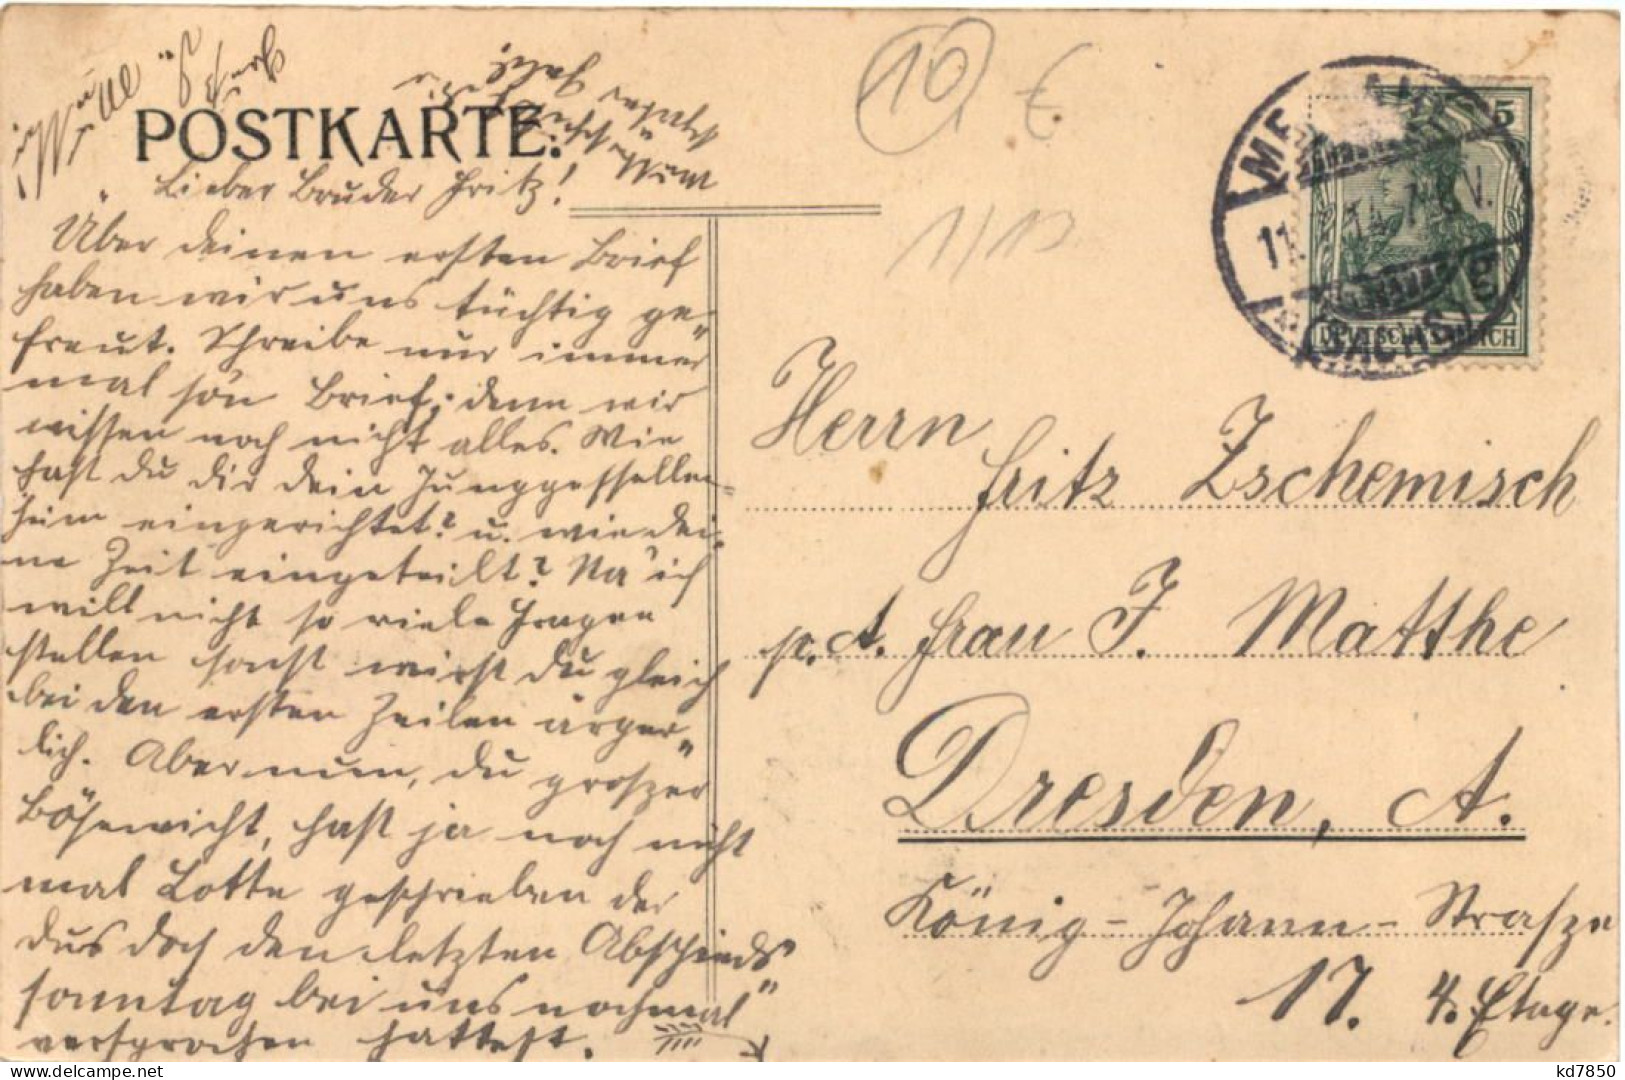 10 €
1/13
POSTKARTE.
Lieber Bruder Fritz!
Über deinen ersten Brief
haben wir uns tüchtig ge-
freut. Schreibe nur immer
mal so'n Brief, denn wir
wissen noch nicht alles. Wie
hast du dir dein Junggesellen-
heim eingerichtet? u. wie dei-
ne Zeit eingeteilt? Na ich
will nicht so viele Fragen
stellen sonst wirst du gleich
bei den ersten Zeilen ärger-
lich. Aber nun, du groszer
Bösewicht, hast ja noch nicht
mal Lotte geschrieben der
dus doch den letzten Abschieds
sonntag bei uns nochmal
versprochen hattest.
DEUTSCHES REICH
5
Herrn
Fritz Zschemisch
p. A. Frau J. Matthe
Dresden, A.
König-Johann-Strasze
17. 4. Etage.
kd7850